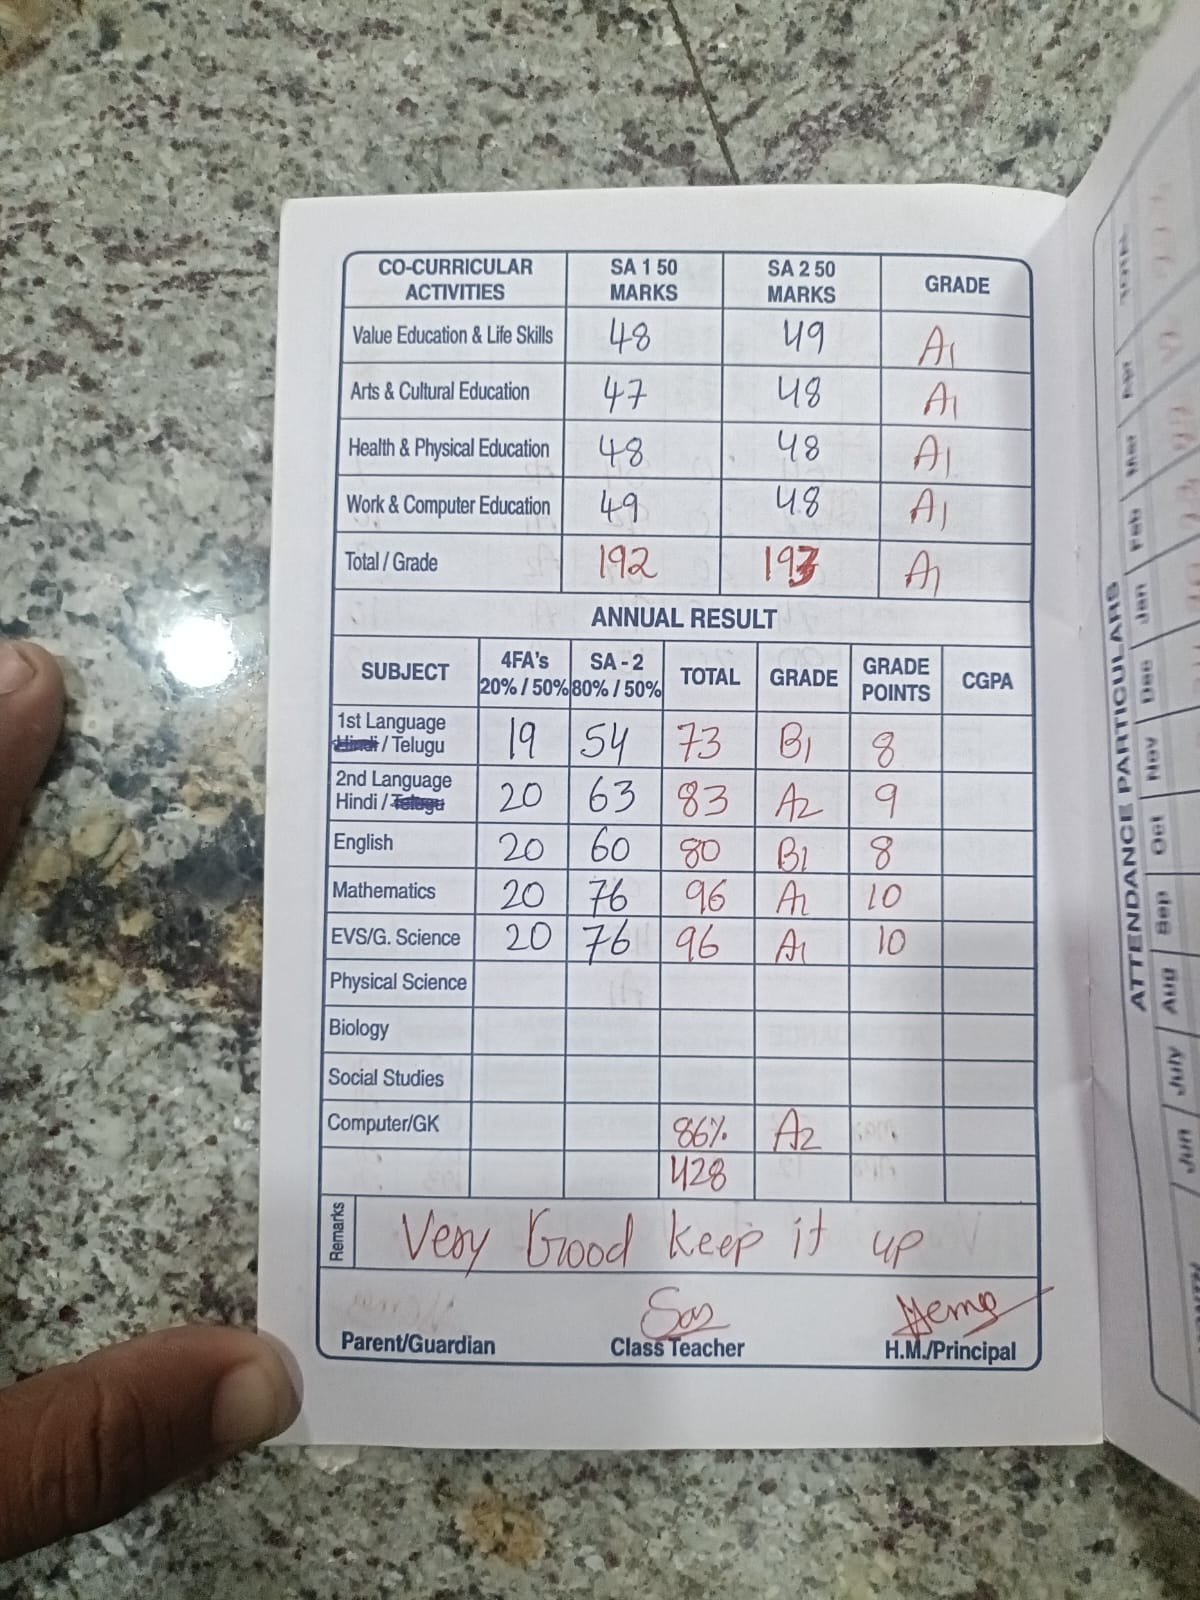 CO-CURRICULAR ACTIVITIES SA 1 50 MARKS SA 2 50 MARKS GRADE
Value Education & Life Skills 48 49 A1
Arts & Cultural Education 47 48 A1
Health & Physical Education 48 48 A1
Work & Computer Education 49 48 A1
Total / Grade 192 193 A1
ANNUAL RESULT
SUBJECT 4FA's 20% / 50% SA - 2 80% / 50% TOTAL GRADE GRADE POINTS CGPA
1st Language Hindi / Telugu 19 54 73 B1 8
2nd Language Hindi / Telugu 20 63 83 A2 9
English 20 60 80 B1 8
Mathematics 20 76 96 A1 10
EVS/G. Science 20 76 96 A1 10
Physical Science
Biology
Social Studies
Computer/GK 86% A2
428
Remarks Very Good keep it up
Parent/Guardian Class Teacher H.M./Principal
ATTENDANCE PARTICULARS
Jun July Aug Sep Oct Nov Dec Jan Feb Mar Apr